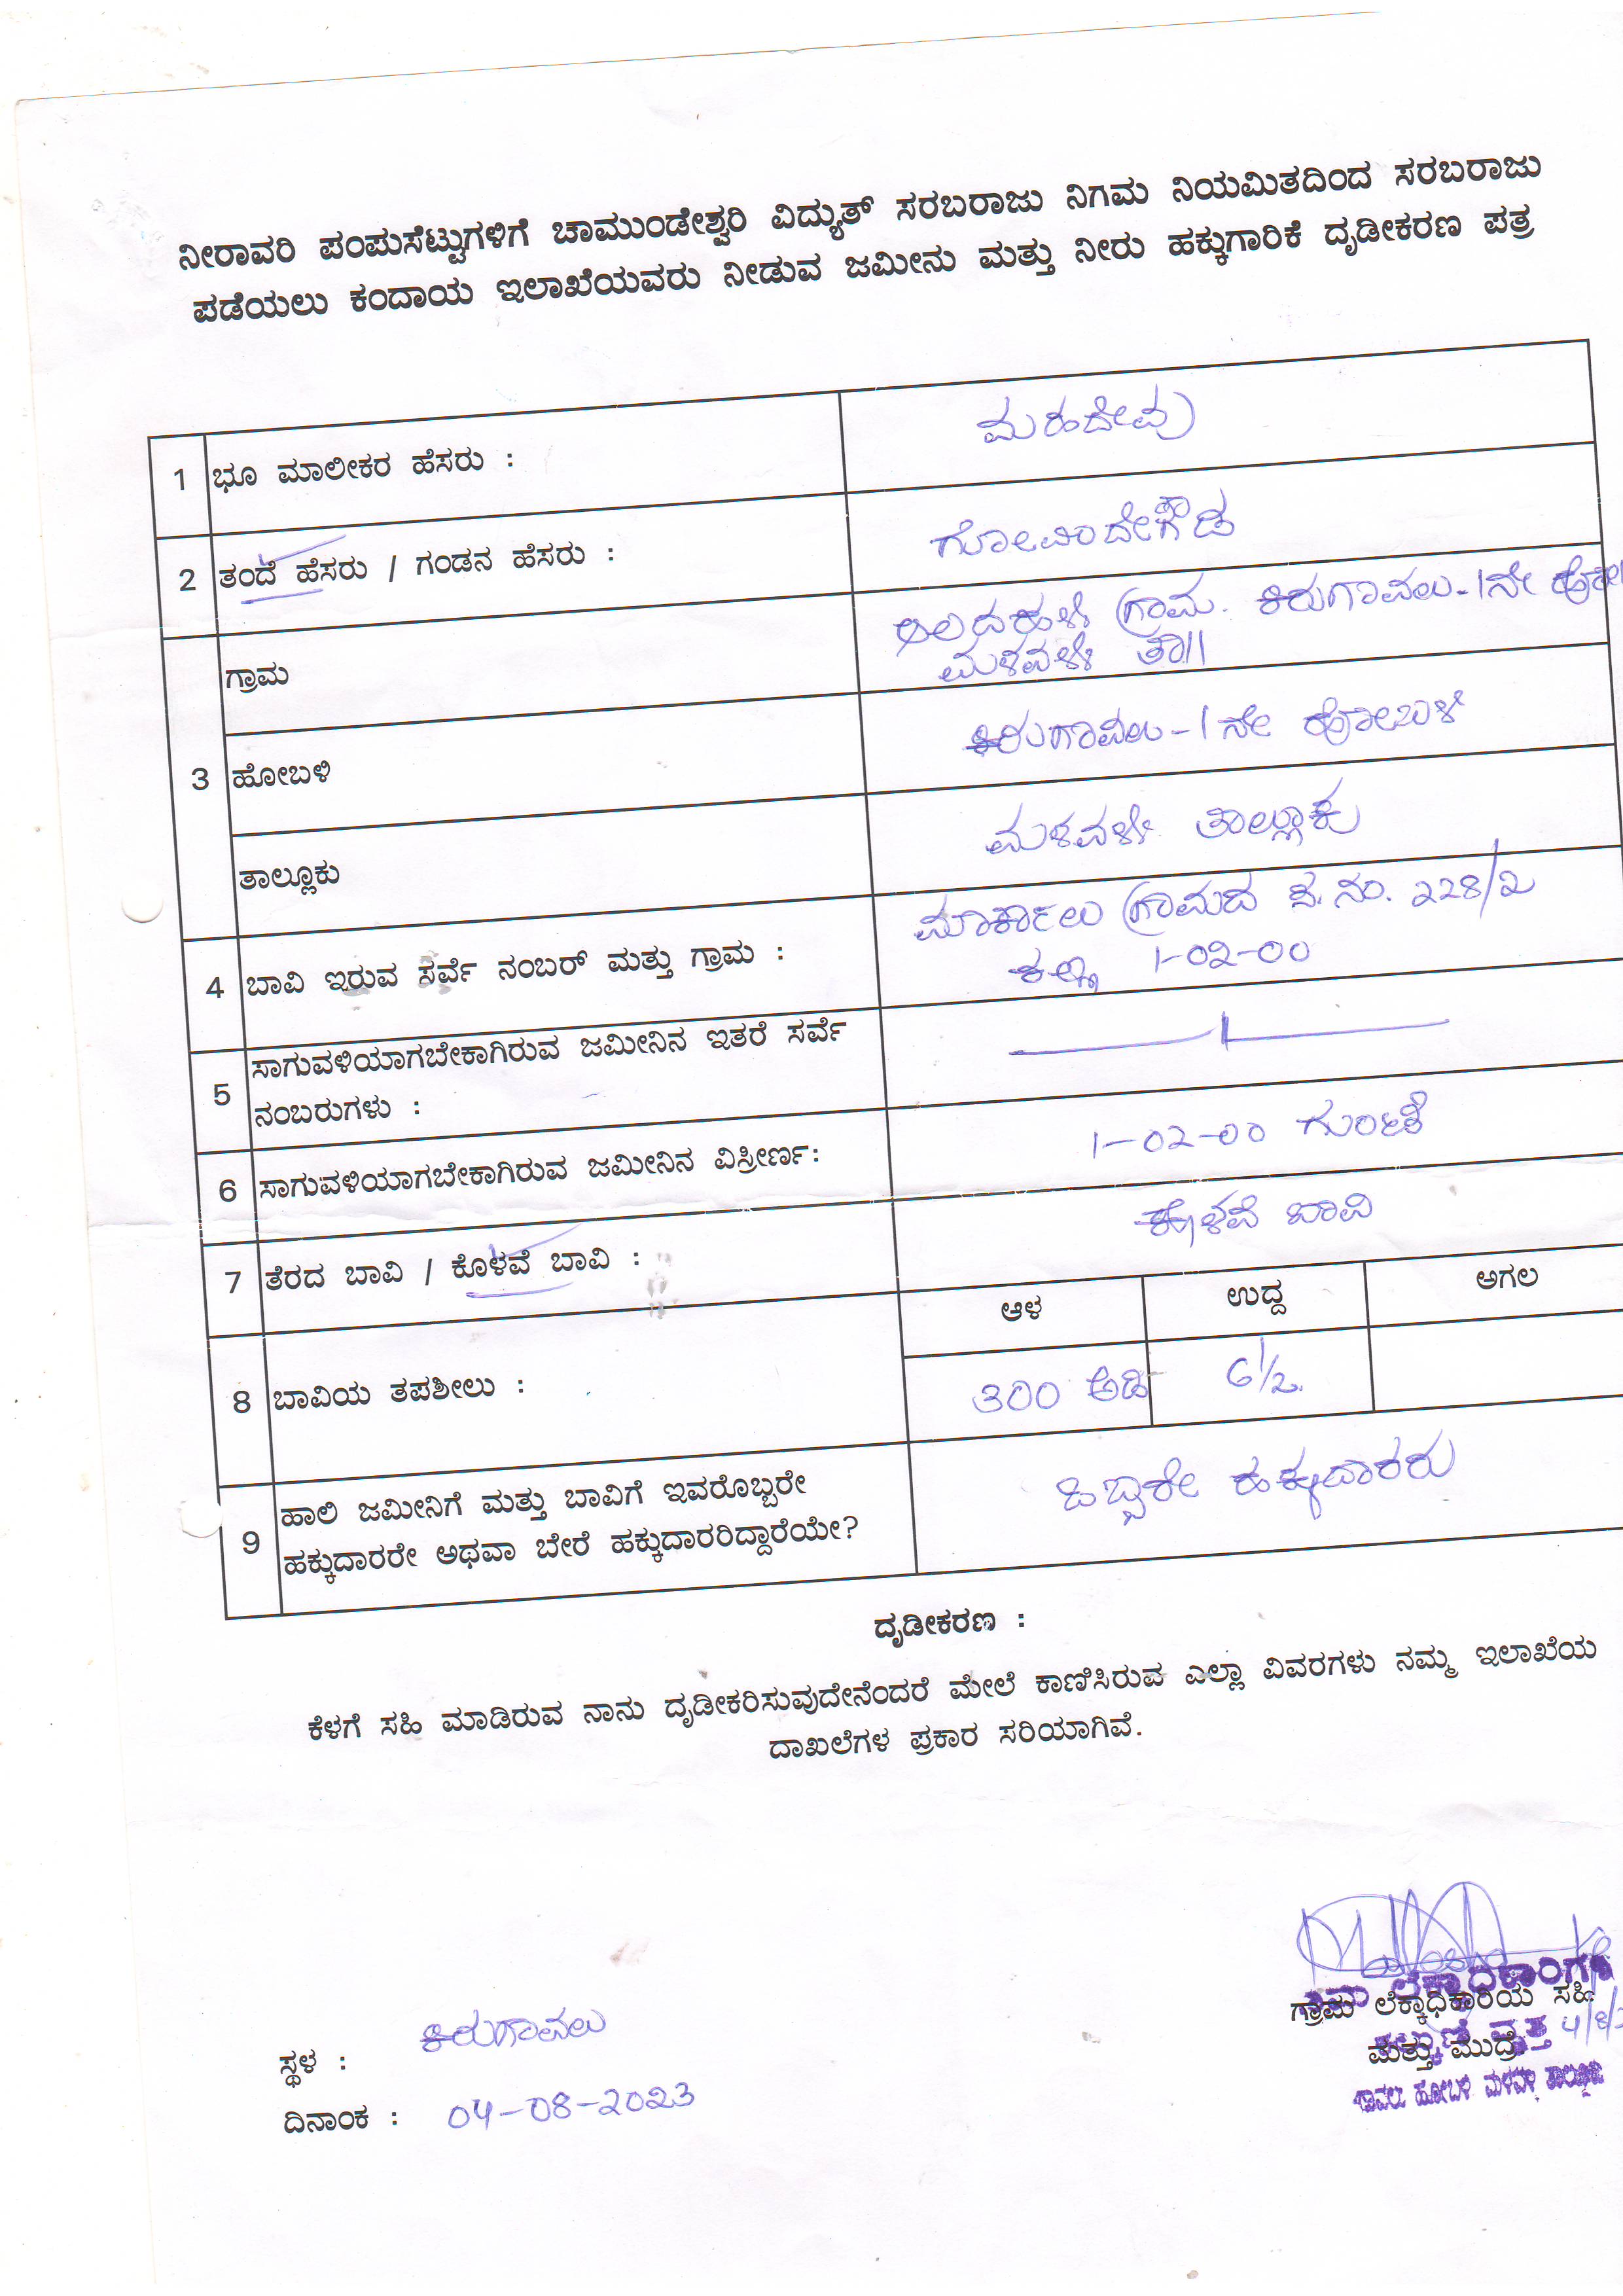 ನೀರಾವರಿ ಪಂಪುಸೆಟ್ಟುಗಳಿಗೆ ಚಾಮುಂಡೇಶ್ವರಿ ವಿದ್ಯುತ್ ಸರಬರಾಜು ನಿಗಮ ನಿಯಮಿತದಿಂದ ಸರಬರಾಜು
ಪಡೆಯಲು ಕಂದಾಯ ಇಲಾಖೆಯವರು ನೀಡುವ ಜಮೀನು ಮತ್ತು ನೀರು ಹಕ್ಕುಗಾರಿಕೆ ದೃಡೀಕರಣ ಪತ್ರ
1 ಭೂ ಮಾಲೀಕರ ಹೆಸರು : ಮಹದೇವು
2 ತಂದೆ ಹೆಸರು / ಗಂಡನ ಹೆಸರು : ಗೋವಿಂದೇಗೌಡ
3 ಗ್ರಾಮ ಗ್ರಾಮ. ಕಿರುಗಾವಲು-1ನೇ ಹೋ
ಮಳವಳ್ಳಿ ತಾ||
ಹೋಬಳಿ ಕಿರುಗಾವಲು-1ನೇ ಹೋಬಳಿ
ತಾಲ್ಲೂಕು ಮಳವಳ್ಳಿ ತಾಲ್ಲೂಕು
4 ಬಾವಿ ಇರುವ ಸರ್ವೆ ನಂಬರ್ ಮತ್ತು ಗ್ರಾಮ : ಮಾರ್ಕಾಲು ಗ್ರಾಮದ ಸ.ನಂ. 228/2
1-02-00
5 ಸಾಗುವಳಿಯಾಗಬೇಕಾಗಿರುವ ಜಮೀನಿನ ಇತರೆ ಸರ್ವೆ
ನಂಬರುಗಳು :
6 ಸಾಗುವಳಿಯಾಗಬೇಕಾಗಿರುವ ಜಮೀನಿನ ವಿಸ್ತೀರ್ಣ: 1-02-00 ಗುಂಟೆ
7 ತೆರದ ಬಾವಿ / ಕೊಳವೆ ಬಾವಿ : ಕೊಳವೆ ಬಾವಿ
ಆಳ ಉದ್ದ ಅಗಲ
8 ಬಾವಿಯ ತಪಶೀಲು : 300 ಅಡಿ 6 1/2
9 ಹಾಲಿ ಜಮೀನಿಗೆ ಮತ್ತು ಬಾವಿಗೆ ಇವರೊಬ್ಬರೇ
ಹಕ್ಕುದಾರರೇ ಅಥವಾ ಬೇರೆ ಹಕ್ಕುದಾರರಿದ್ದಾರೆಯೇ? ಒಬ್ಬರೇ ಹಕ್ಕುದಾರರು
ದೃಡೀಕರಣ :
ಕೆಳಗೆ ಸಹಿ ಮಾಡಿರುವ ನಾನು ದೃಡೀಕರಿಸುವುದೇನೆಂದರೆ ಮೇಲೆ ಕಾಣಿಸಿರುವ ಎಲ್ಲಾ ವಿವರಗಳು ನಮ್ಮ ಇಲಾಖೆಯ
ದಾಖಲೆಗಳ ಪ್ರಕಾರ ಸರಿಯಾಗಿವೆ.
ಗ್ರಾಮ ಲೆಕ್ಕಾಧಿಕಾರಿಯ ಸಹಿ
ಮತ್ತು ಮುದ್ರೆ
ಹೋಬಳಿ ಮಳವಳ್ಳಿ ತಾಲ್ಲೂಕು
ಸ್ಥಳ : ಕಿರುಗಾವಲು
ದಿನಾಂಕ : 04-08-2023